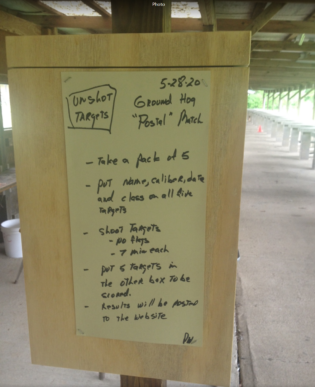 Photo
5-28-20
UNSHOT
TARGETS
Ground Hog
"Postal" Match
- Take a pack of 5
- put name, caliber, date
and class on all five
targets
- Shoot Targets
- no flags
- 7 min each
- put 5 targets in
the other box to be
scored.
- Results will be posted
to the website